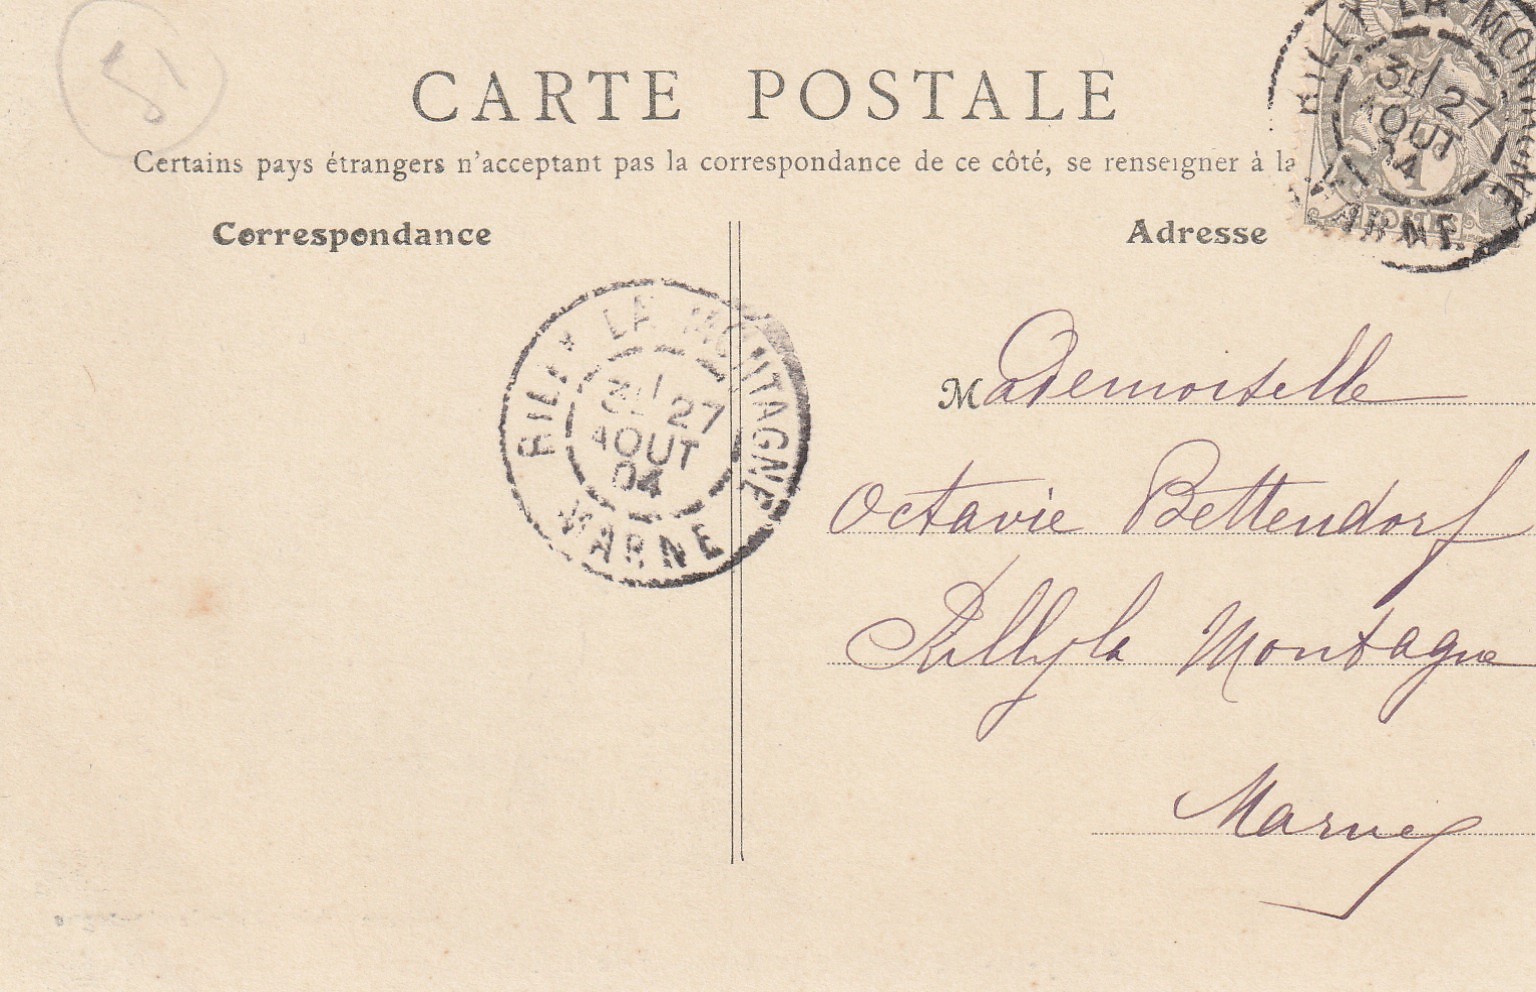 51
CARTE POSTALE
Certains pays étrangers n'acceptant pas la correspondance de ce côté, se renseigner à la
Correspondance
Adresse
RILLY LA MONTAGNE
3E/27
AOUT
04
MARNE
1
POSTES
RILLY LA MONTAGNE
3E/27
AOUT
04
MARNE
Mademoiselle
Octavie Bettendorf
Rilly la Montagne
Marne